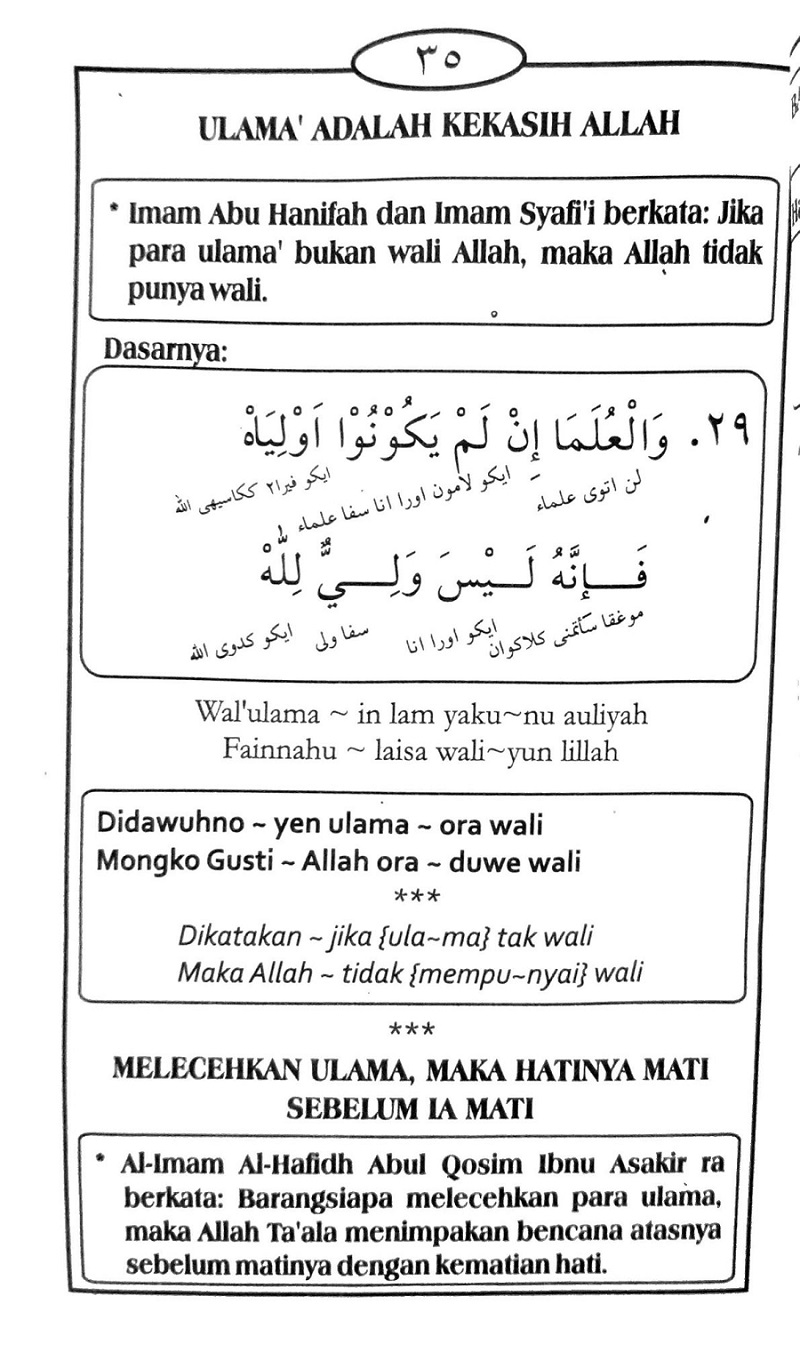 ٣٥
ULAMA' ADALAH KEKASIH ALLAH
* Imam Abu Hanifah dan Imam Syafi'i berkata: Jika
para ulama' bukan wali Allah, maka Allah tidak
punya wali.
Dasarnya:
٢٩. وَالْعُلَمَا إِنْ لَمْ يَكُوْنُوْا اَوْلِيَاهْ
لن اتوى علماء ايكو لامون اورا انا سفا علماء ايكو فيرا٢ ككاسيهى الله
فَـإِنَّهُ لَـيْسَ وَلِـيٌّ لِلّٰهْ
موغقا ستمنى كلاكوان ايكو اورا انا سفا ولى ايكو كدوى الله
Wal'ulama ~ in lam yaku~nu auliyah
Fainnahu ~ laisa wali~yun lillah
Didawuhno ~ yen ulama ~ ora wali
Mongko Gusti ~ Allah ora ~ duwe wali
***
Dikatakan ~ jika {ula~ma} tak wali
Maka Allah ~ tidak {mempu~nyai} wali
***
MELECEHKAN ULAMA, MAKA HATINYA MATI
SEBELUM IA MATI
* Al-Imam Al-Hafidh Abul Qosim Ibnu Asakir ra
berkata: Barangsiapa melecehkan para ulama,
maka Allah Ta'ala menimpakan bencana atasnya
sebelum matinya dengan kematian hati.